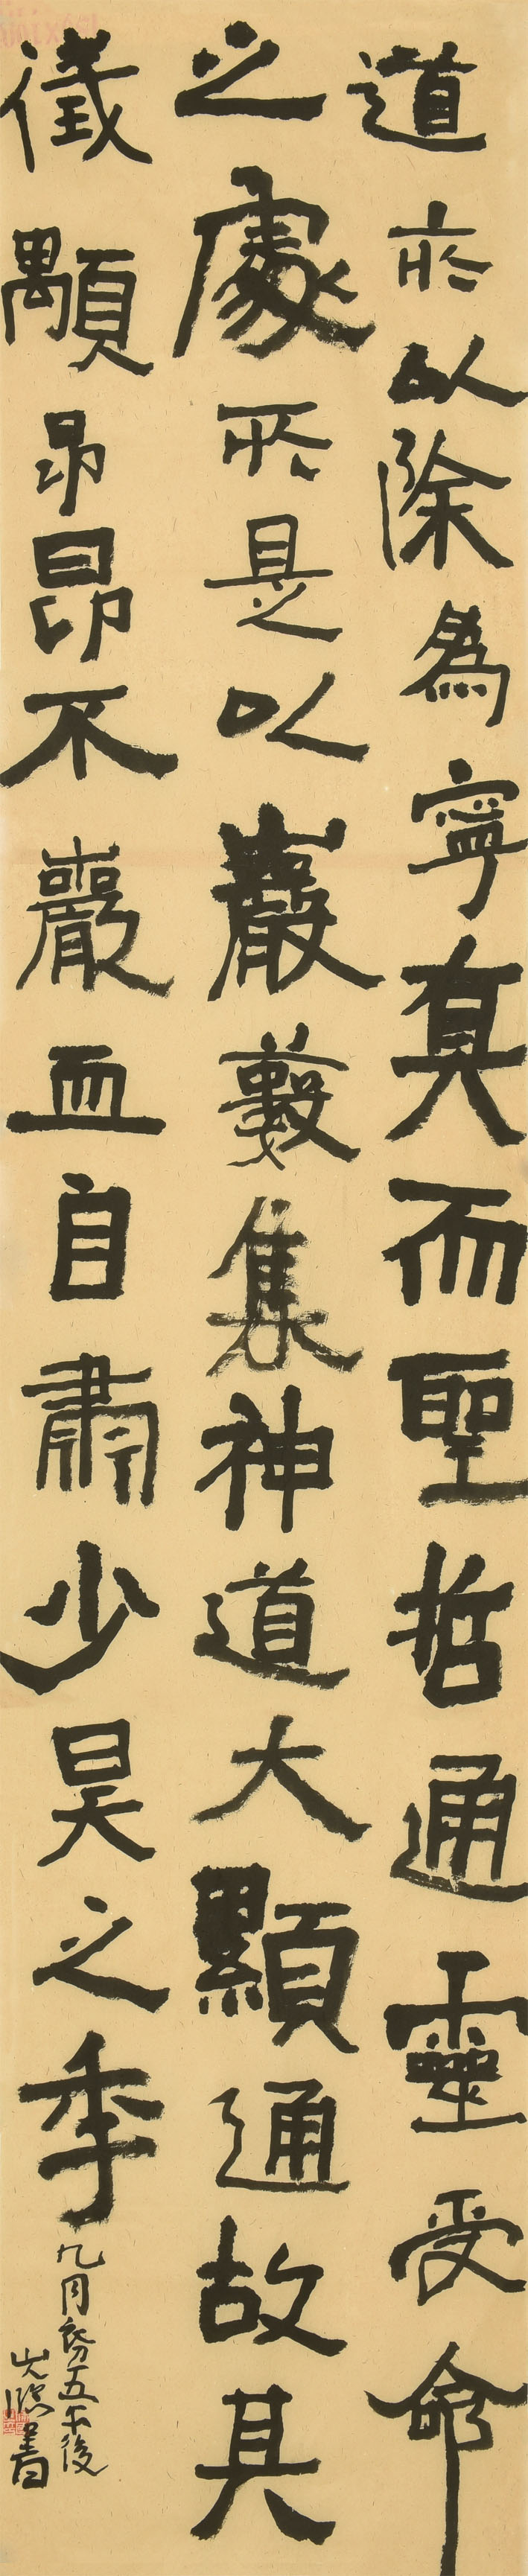 道於以除為寧真而聖哲通靈受命
之處所是以嚴藪集神道大顯通故其
儀顒昂昂不嚴而自肅少昊之季
九月初五午後